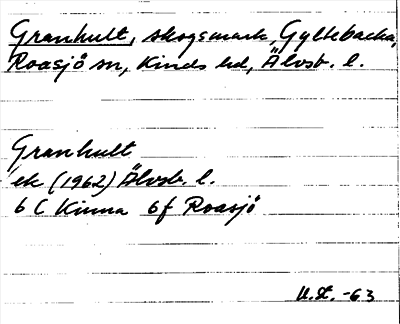 Granhult, skogsmark, Gyltebacka,
Roasjö sn, Kinds hd, Älvsb. l.
Granhult
ek (1962) Älvsb. l.
6 C Kinna 6f Roasjö
-63